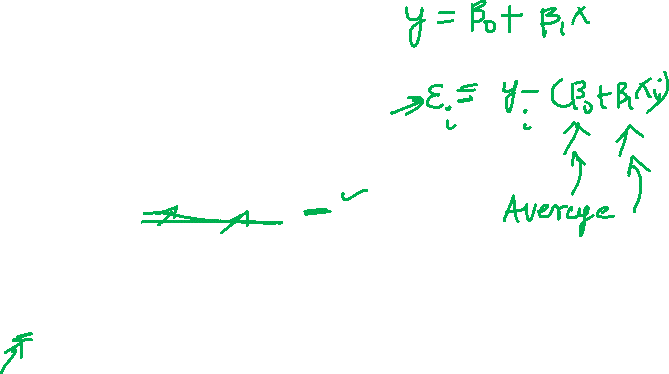 y = β₀ + β₁x
εᵢ = yᵢ - (β₀ + β₁xᵢ)
Average